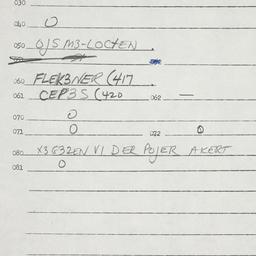 030
040 O
050 OJSM3-LOCTEN
060 FLEK3NER (417
061 CEP3S (420 062 —
070 O
071 O 072 O
080 X3G32EN VI DER POJER AKERT
081 O